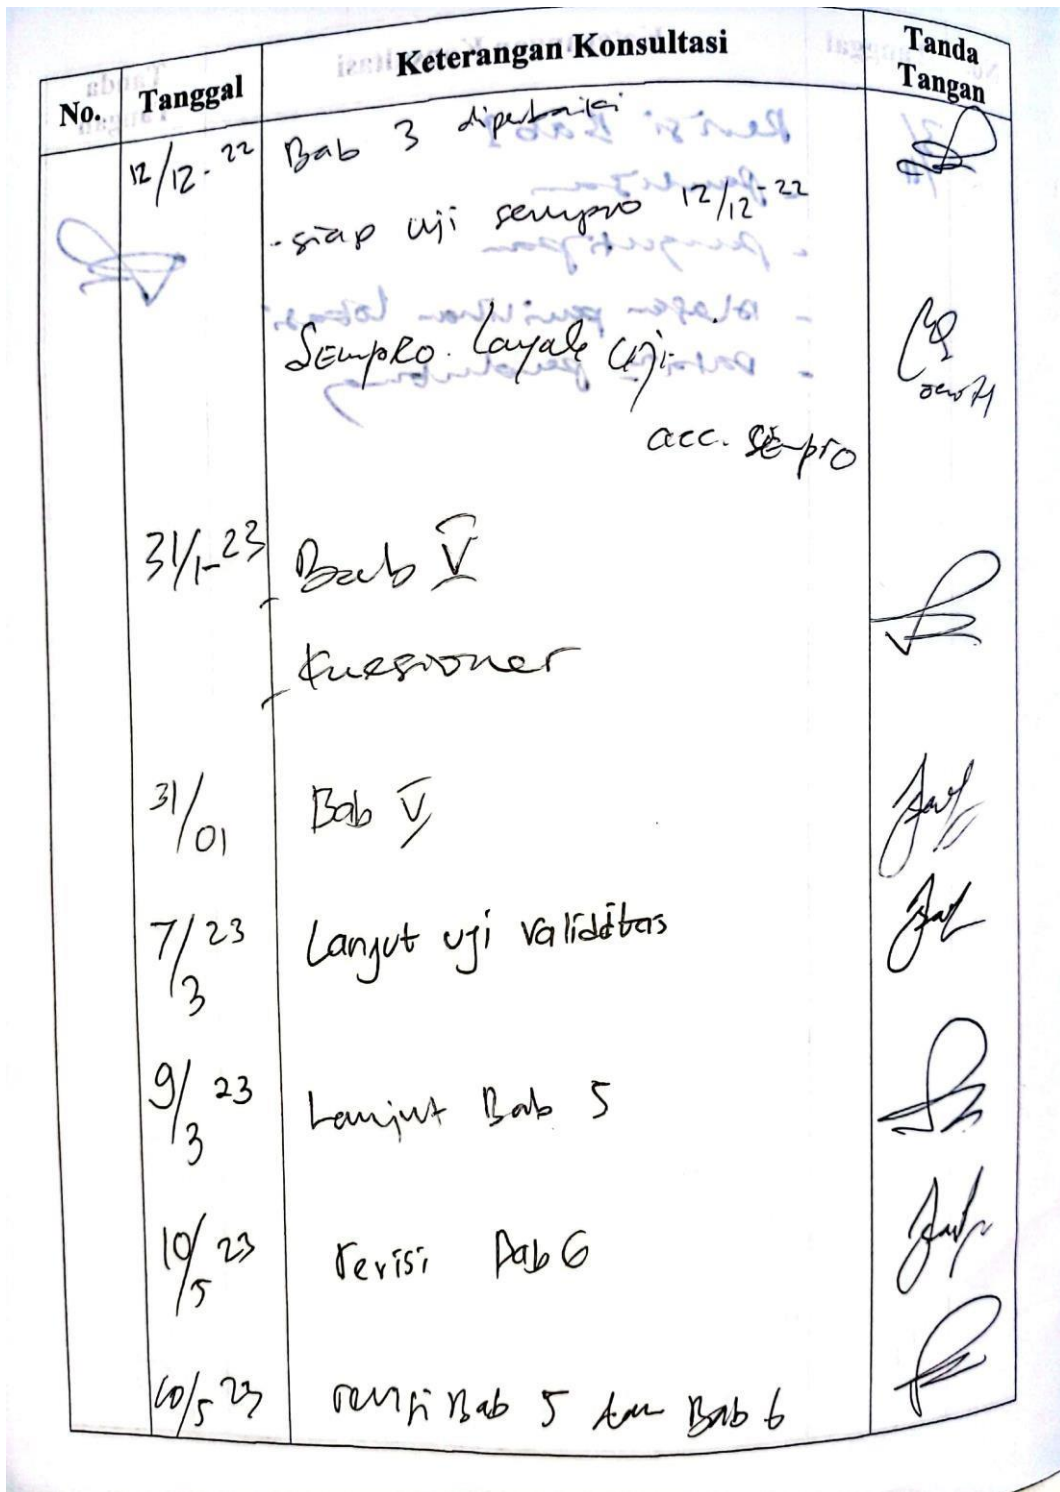 No. Tanggal Keterangan Konsultasi Tanda Tangan
12/12-22 Bab 3 diperbaiki
- siap uji sempro 12/12-22
Sempro. Layak Uji.
acc. sempro
31/1-23 Bab V
- Kuesioner
31/01 Bab V
7/3 23 Lanjut uji validitas
9/3 23 Lanjut Bab 5
10/5 23 revisi Bab 6
10/5 23 revisi Bab 5 dan Bab 6